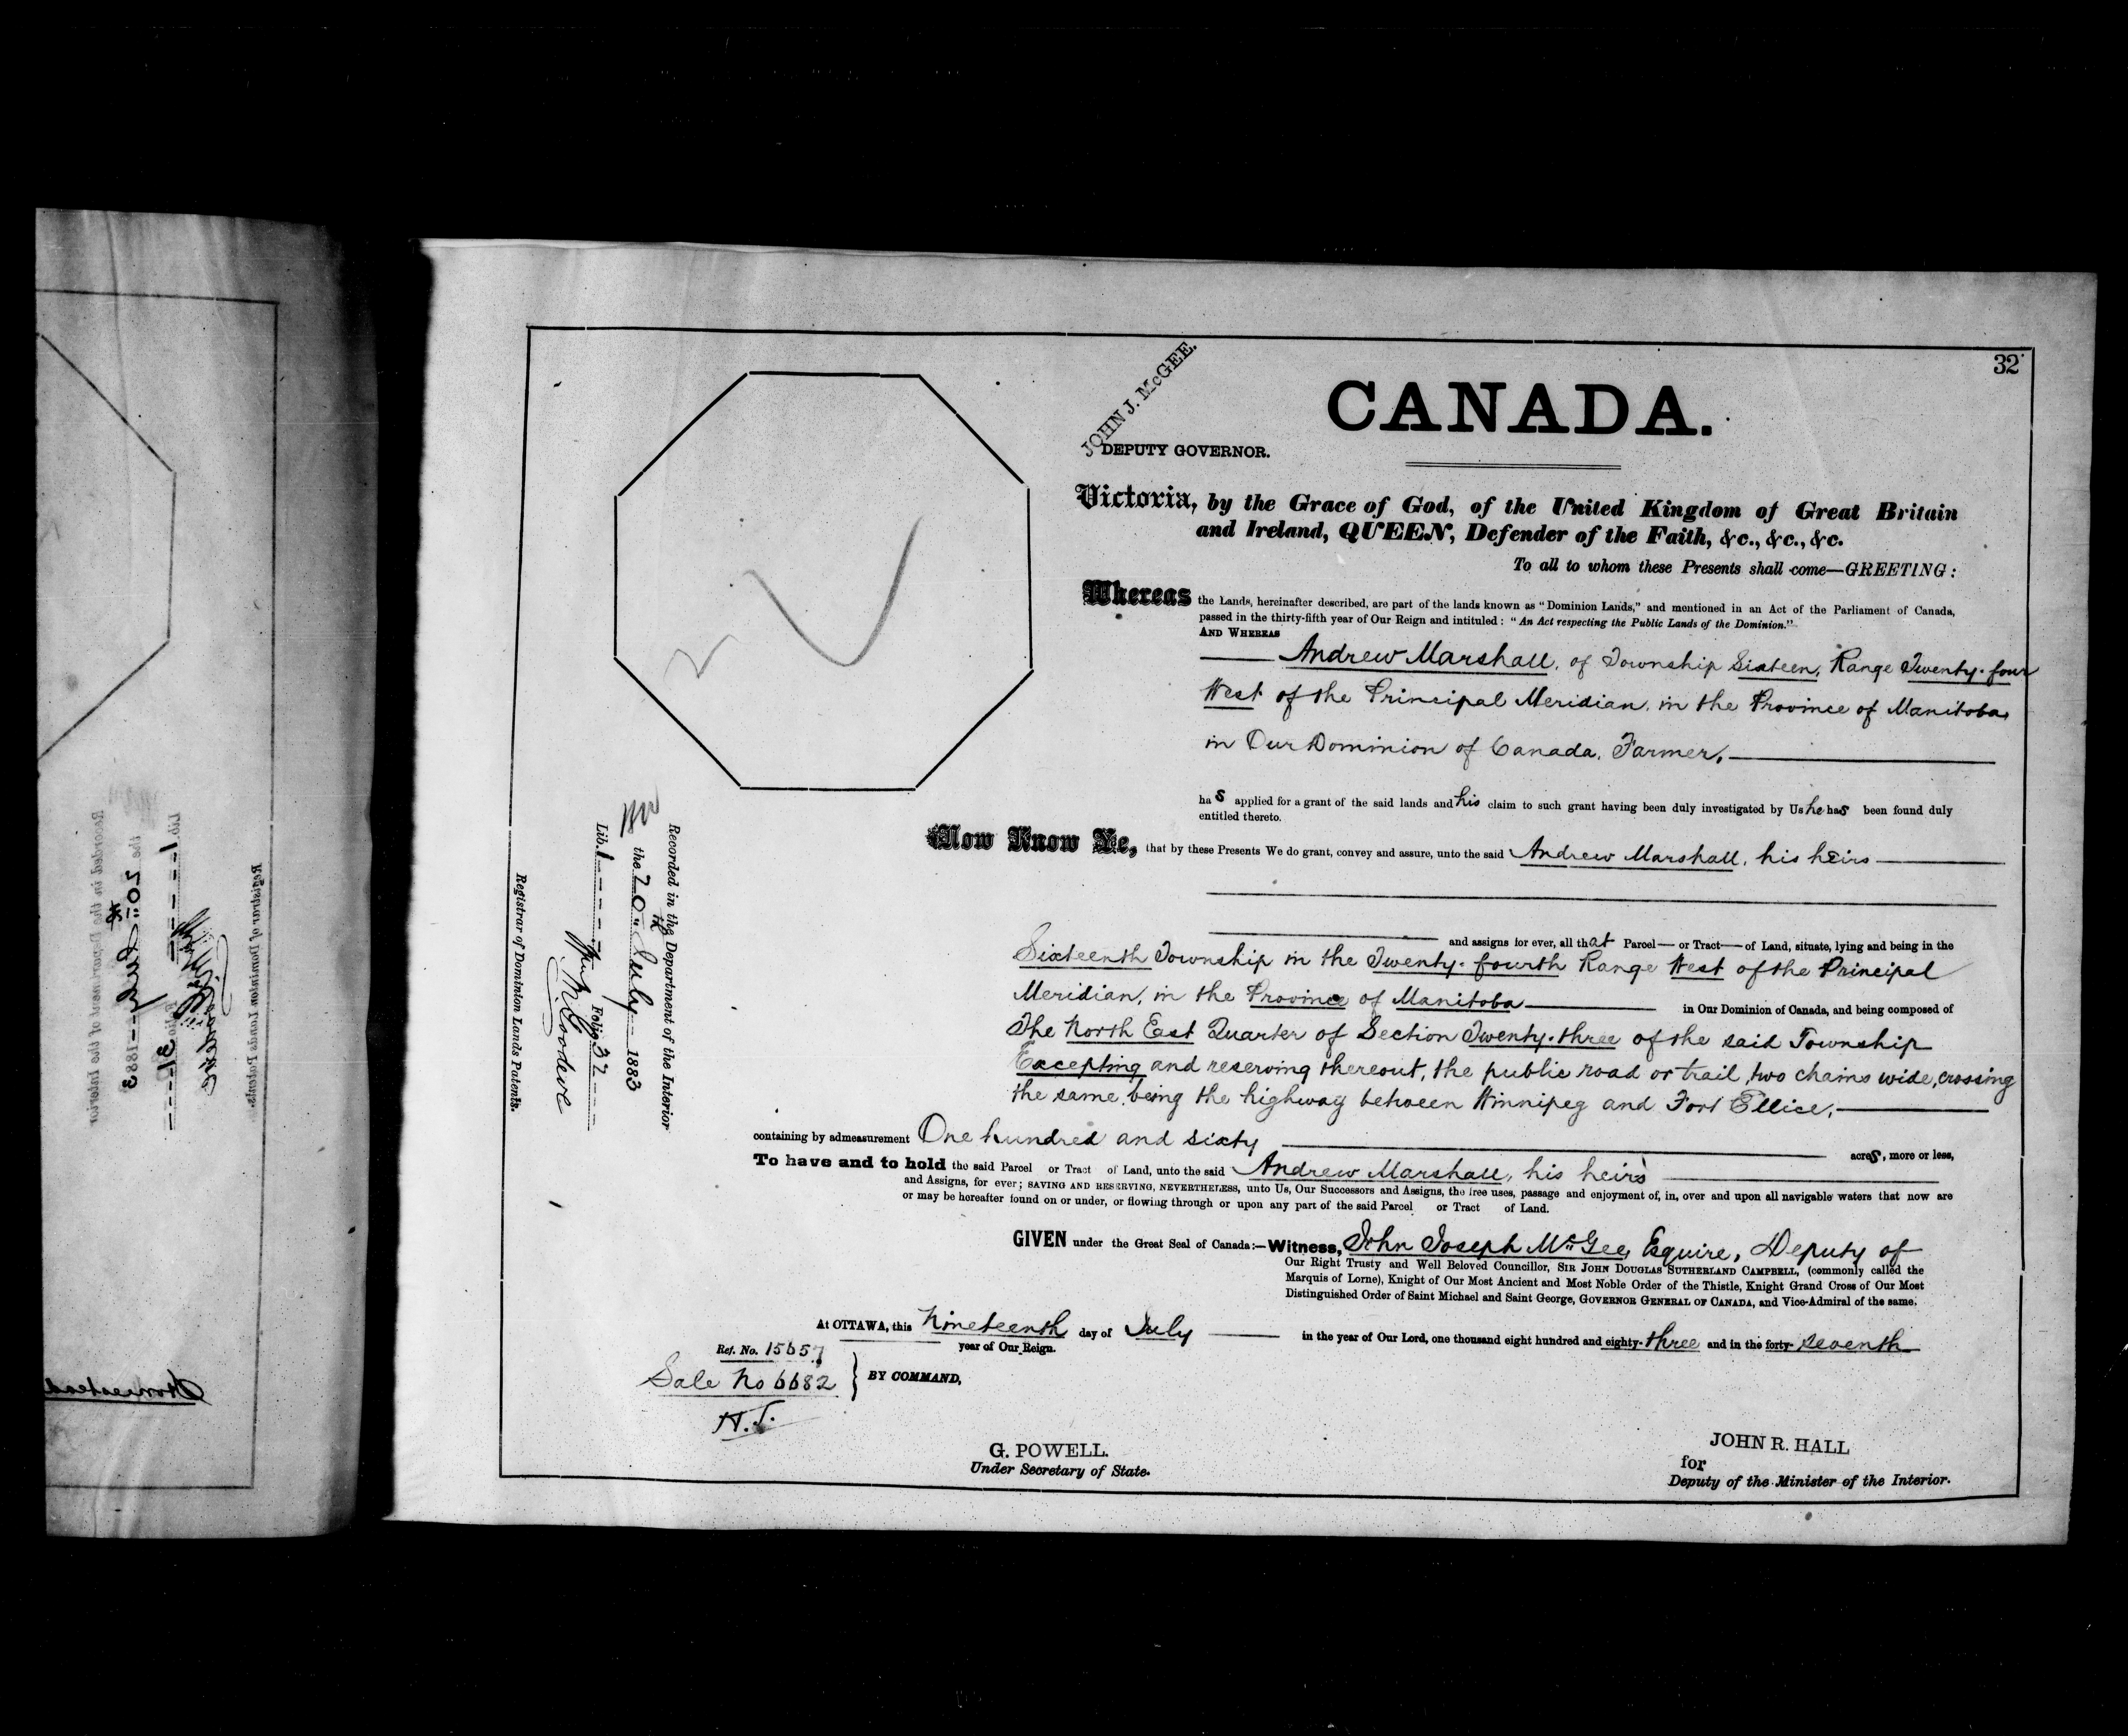 32
JOHN J. McGEE.
DEPUTY GOVERNOR.
CANADA.
Victoria, by the Grace of God, of the United Kingdom of Great Britain
and Ireland, QUEEN, Defender of the Faith, &c., &c., &c.
To all to whom these Presents shall come—GREETING:
Whereas the Lands, hereinafter described, are part of the lands known as "Dominion Lands," and mentioned in an Act of the Parliament of Canada,
passed in the thirty-fifth year of Our Reign and intituled: "An Act respecting the Public Lands of the Dominion."
AND WHEREAS
Andrew Marshall, of Township Sixteen, Range Twenty-four
West of the Principal Meridian, in the Province of Manitoba,
in Our Dominion of Canada, Farmer,
has applied for a grant of the said lands and his claim to such grant having been duly investigated by Us he has been found duly
entitled thereto.
Now Know Ye, that by these Presents We do grant, convey and assure, unto the said Andrew Marshall, his heirs
and assigns for ever, all that Parcel — or Tract — of Land, situate, lying and being in the
Sixteenth Township in the Twenty-fourth Range West of the Principal
Meridian, in the Province of Manitoba in Our Dominion of Canada, and being composed of
The North East Quarter of Section Twenty-three of the said Township
Excepting and reserving thereout, the public road or trail, two chains wide, crossing
the same, being the highway between Winnipeg and Fort Ellice,
containing by admeasurement One hundred and sixty acres, more or less,
To have and to hold the said Parcel or Tract of Land, unto the said Andrew Marshall, his heirs
and Assigns, for ever; SAVING AND RESERVING, NEVERTHELESS, unto Us, Our Successors and Assigns, the free uses, passage and enjoyment of, in, over and upon all navigable waters that now are
or may be hereafter found on or under, or flowing through or upon any part of the said Parcel or Tract of Land.
GIVEN under the Great Seal of Canada:—Witness, John Joseph McGee, Esquire, Deputy of
Our Right Trusty and Well Beloved Councillor, SIR JOHN DOUGLAS SUTHERLAND CAMPBELL, (commonly called the
Marquis of Lorne), Knight of Our Most Ancient and Most Noble Order of the Thistle, Knight Grand Cross of Our Most
Distinguished Order of Saint Michael and Saint George, GOVERNOR GENERAL OF CANADA, and Vice-Admiral of the same.
At OTTAWA, this Nineteenth day of July in the year of Our Lord, one thousand eight hundred and eighty-three and in the forty-seventh
year of Our Reign.
Ref. No. 15657
Sale No 6682
H.J.
BY COMMAND,
G. POWELL.
Under Secretary of State.
JOHN R. HALL
for
Deputy of the Minister of the Interior.
Recorded in the Department of the Interior
the 20th July 1883
Lib. 1 Folio 32
Registrar of Dominion Lands Patents.
Recorded in the Department of the Interior
the 20th July 1883
Lib. 1 Folio 31
Registrar of Dominion Lands Patents.
Homestead